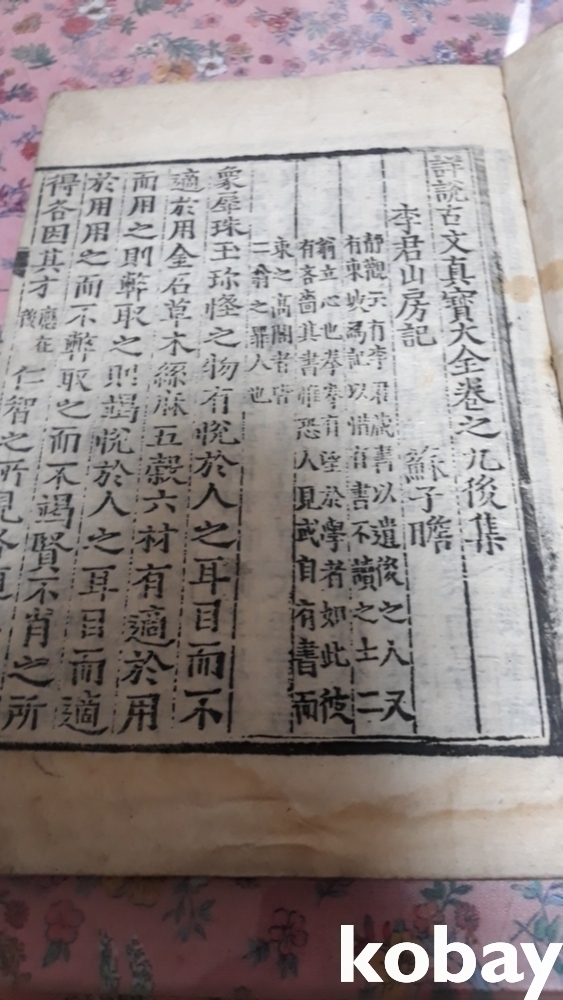 詳說古文真寶大全卷之九後集
李君山房記 蘇子瞻
靜觀天有李君藏書以遺後之人又
有東坡爲記以惜有書不讀之士二
翁立心也拳拳有望於學者如此彼
有吝嗇其書惟恐人見或自有書而
束之高閣者皆
二翁之罪人也
象犀珠玉珍怪之物有悅於人之耳目而不
適於用金石草木絲麻五穀六材有適於用
而用之則弊取之則竭悅於人之耳目而適
於用用之而不弊取之而不竭賢不肖之所
得各因其才 應在後 仁智之所見各
kobay